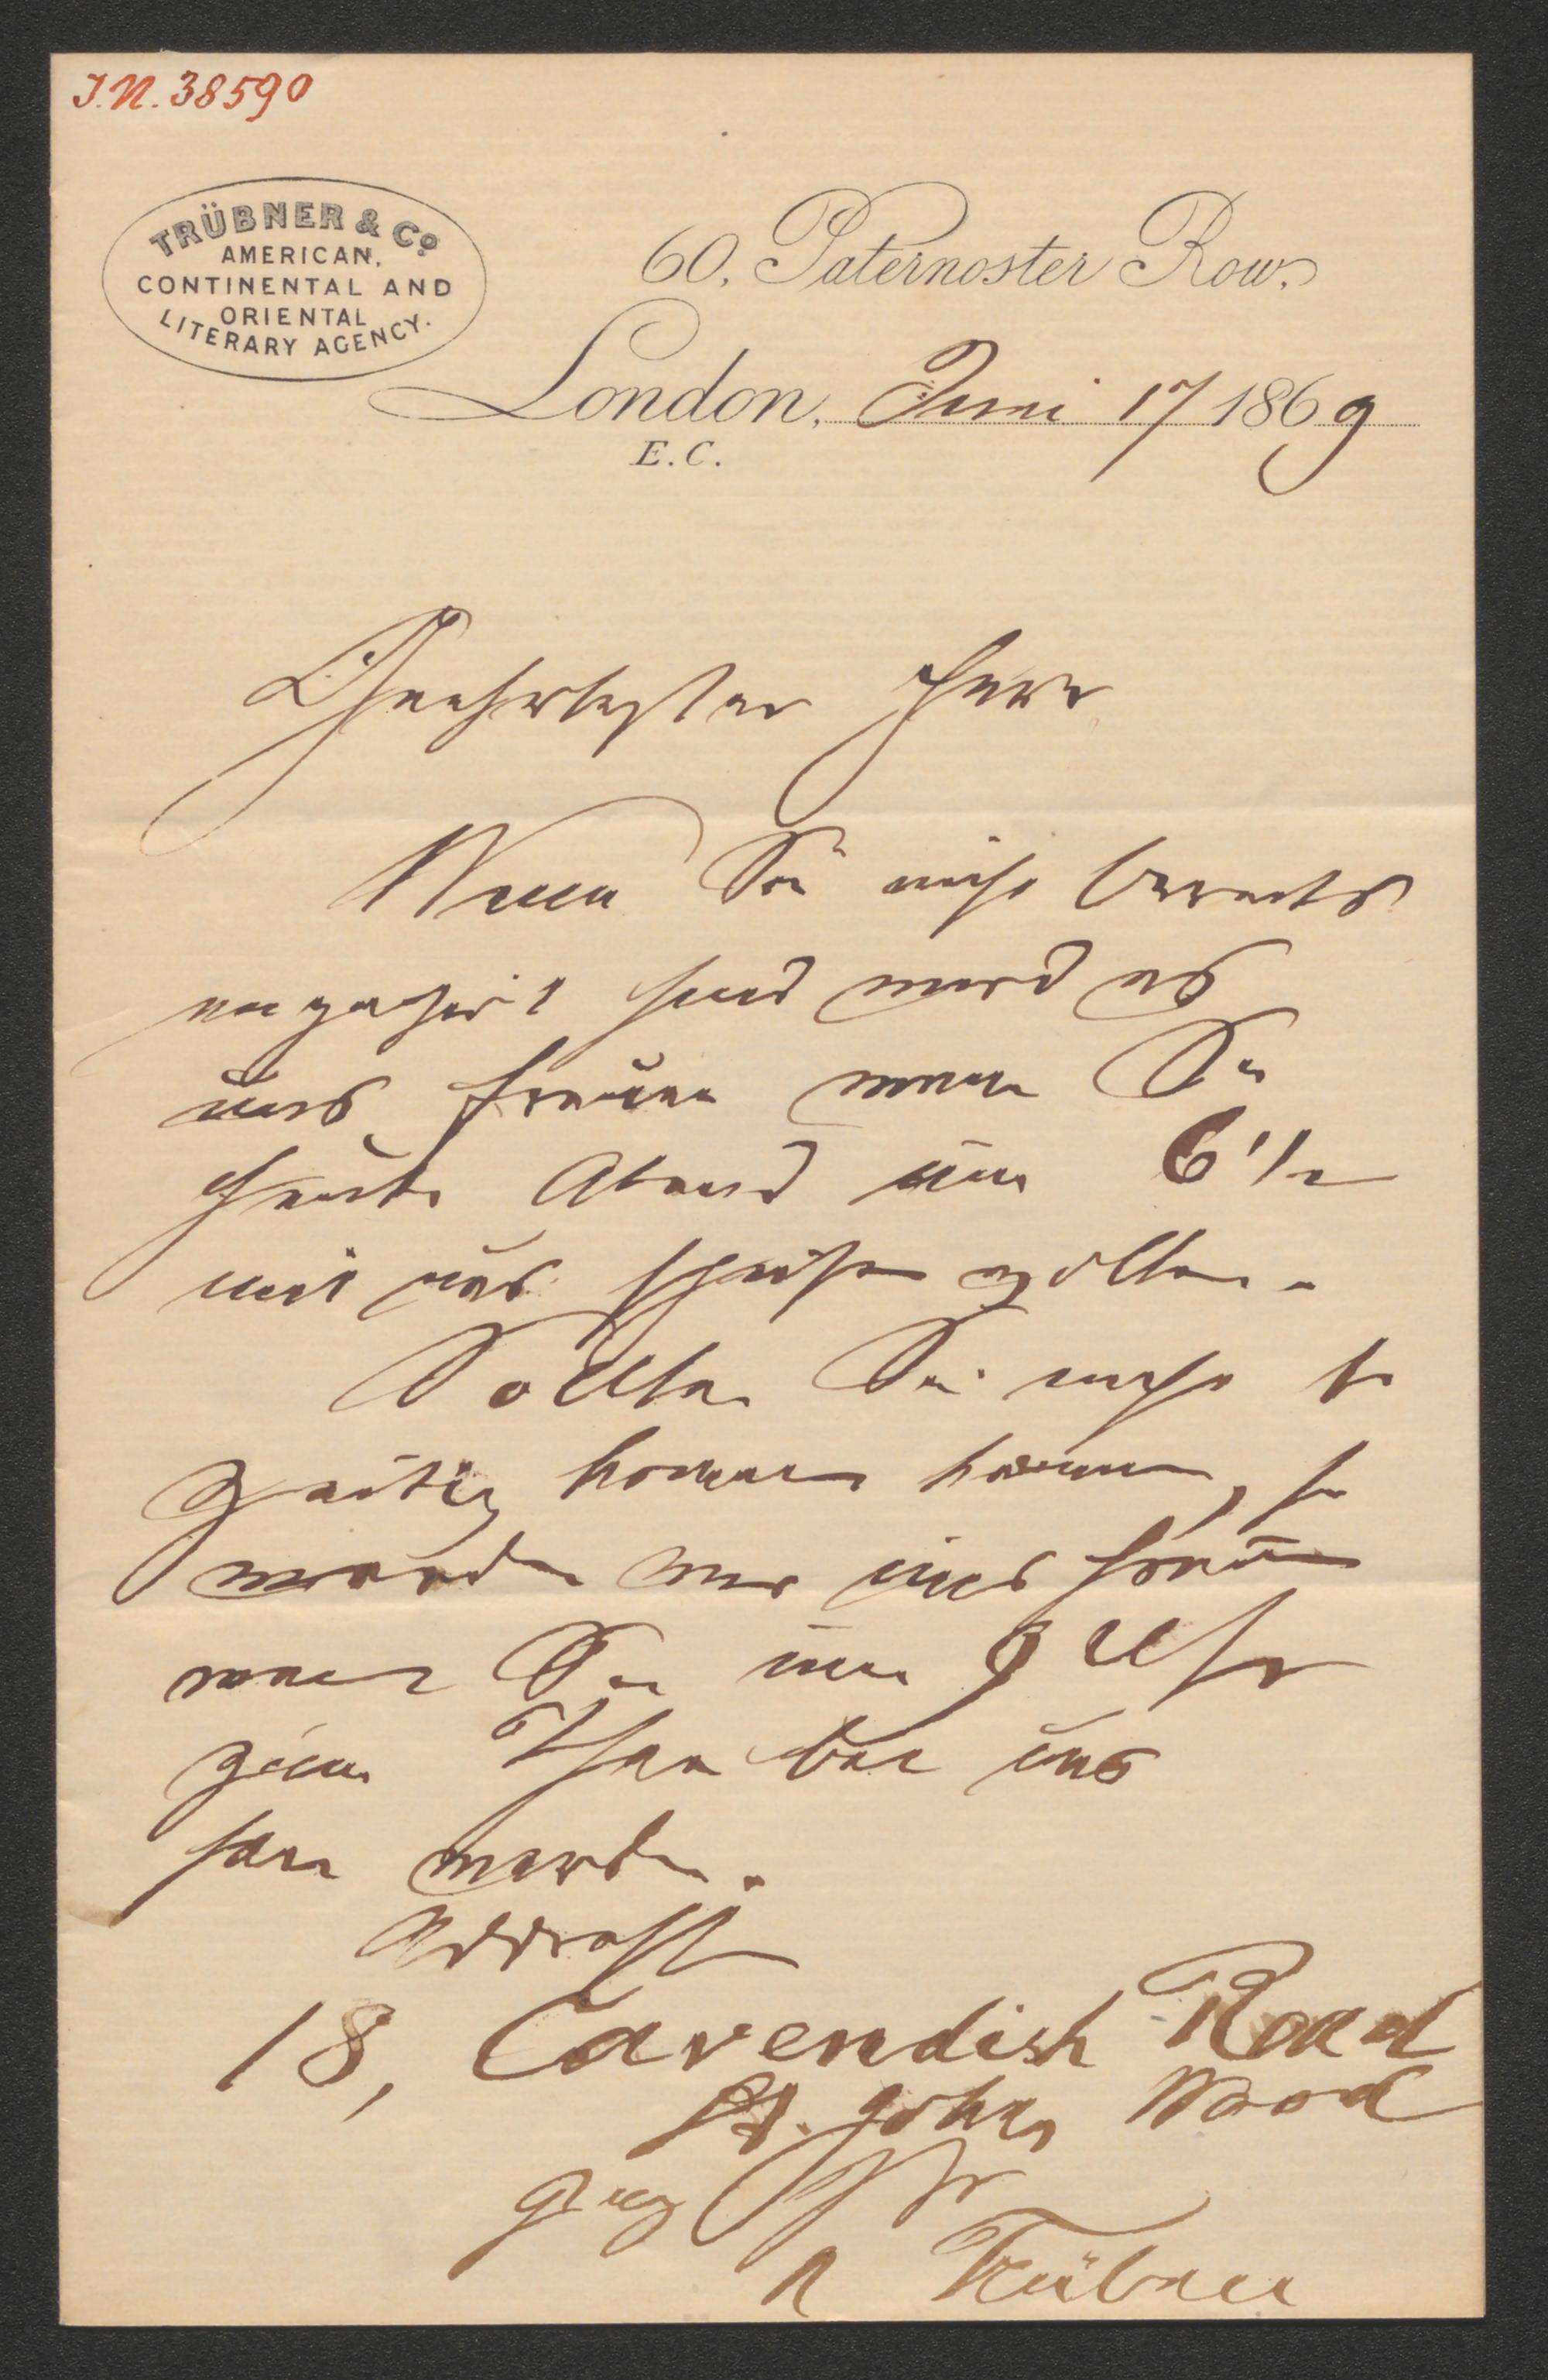 I.N. 38590
TRÜBNER & Co.
AMERICAN,
CONTINENTAL AND
ORIENTAL
LITERARY AGENCY.
60, Paternoster Row,
London, Juni 17 1869
E.C.
Geehrtester Herr
Wenn Sie nicht bereits
engagirt sind wird es
uns freuen wenn Sie
heute Abend um 6 1/2
mit uns speisen wollten.
Sollten Sie nicht so
zeitig kommen können, so
werden wir uns freuen
wenn Sie um 9 Uhr
zum Thee bei uns
sein werden.
Addresse
18, Cavendish Road
St. Johns Wood
Ganz Ihr
N Trübner